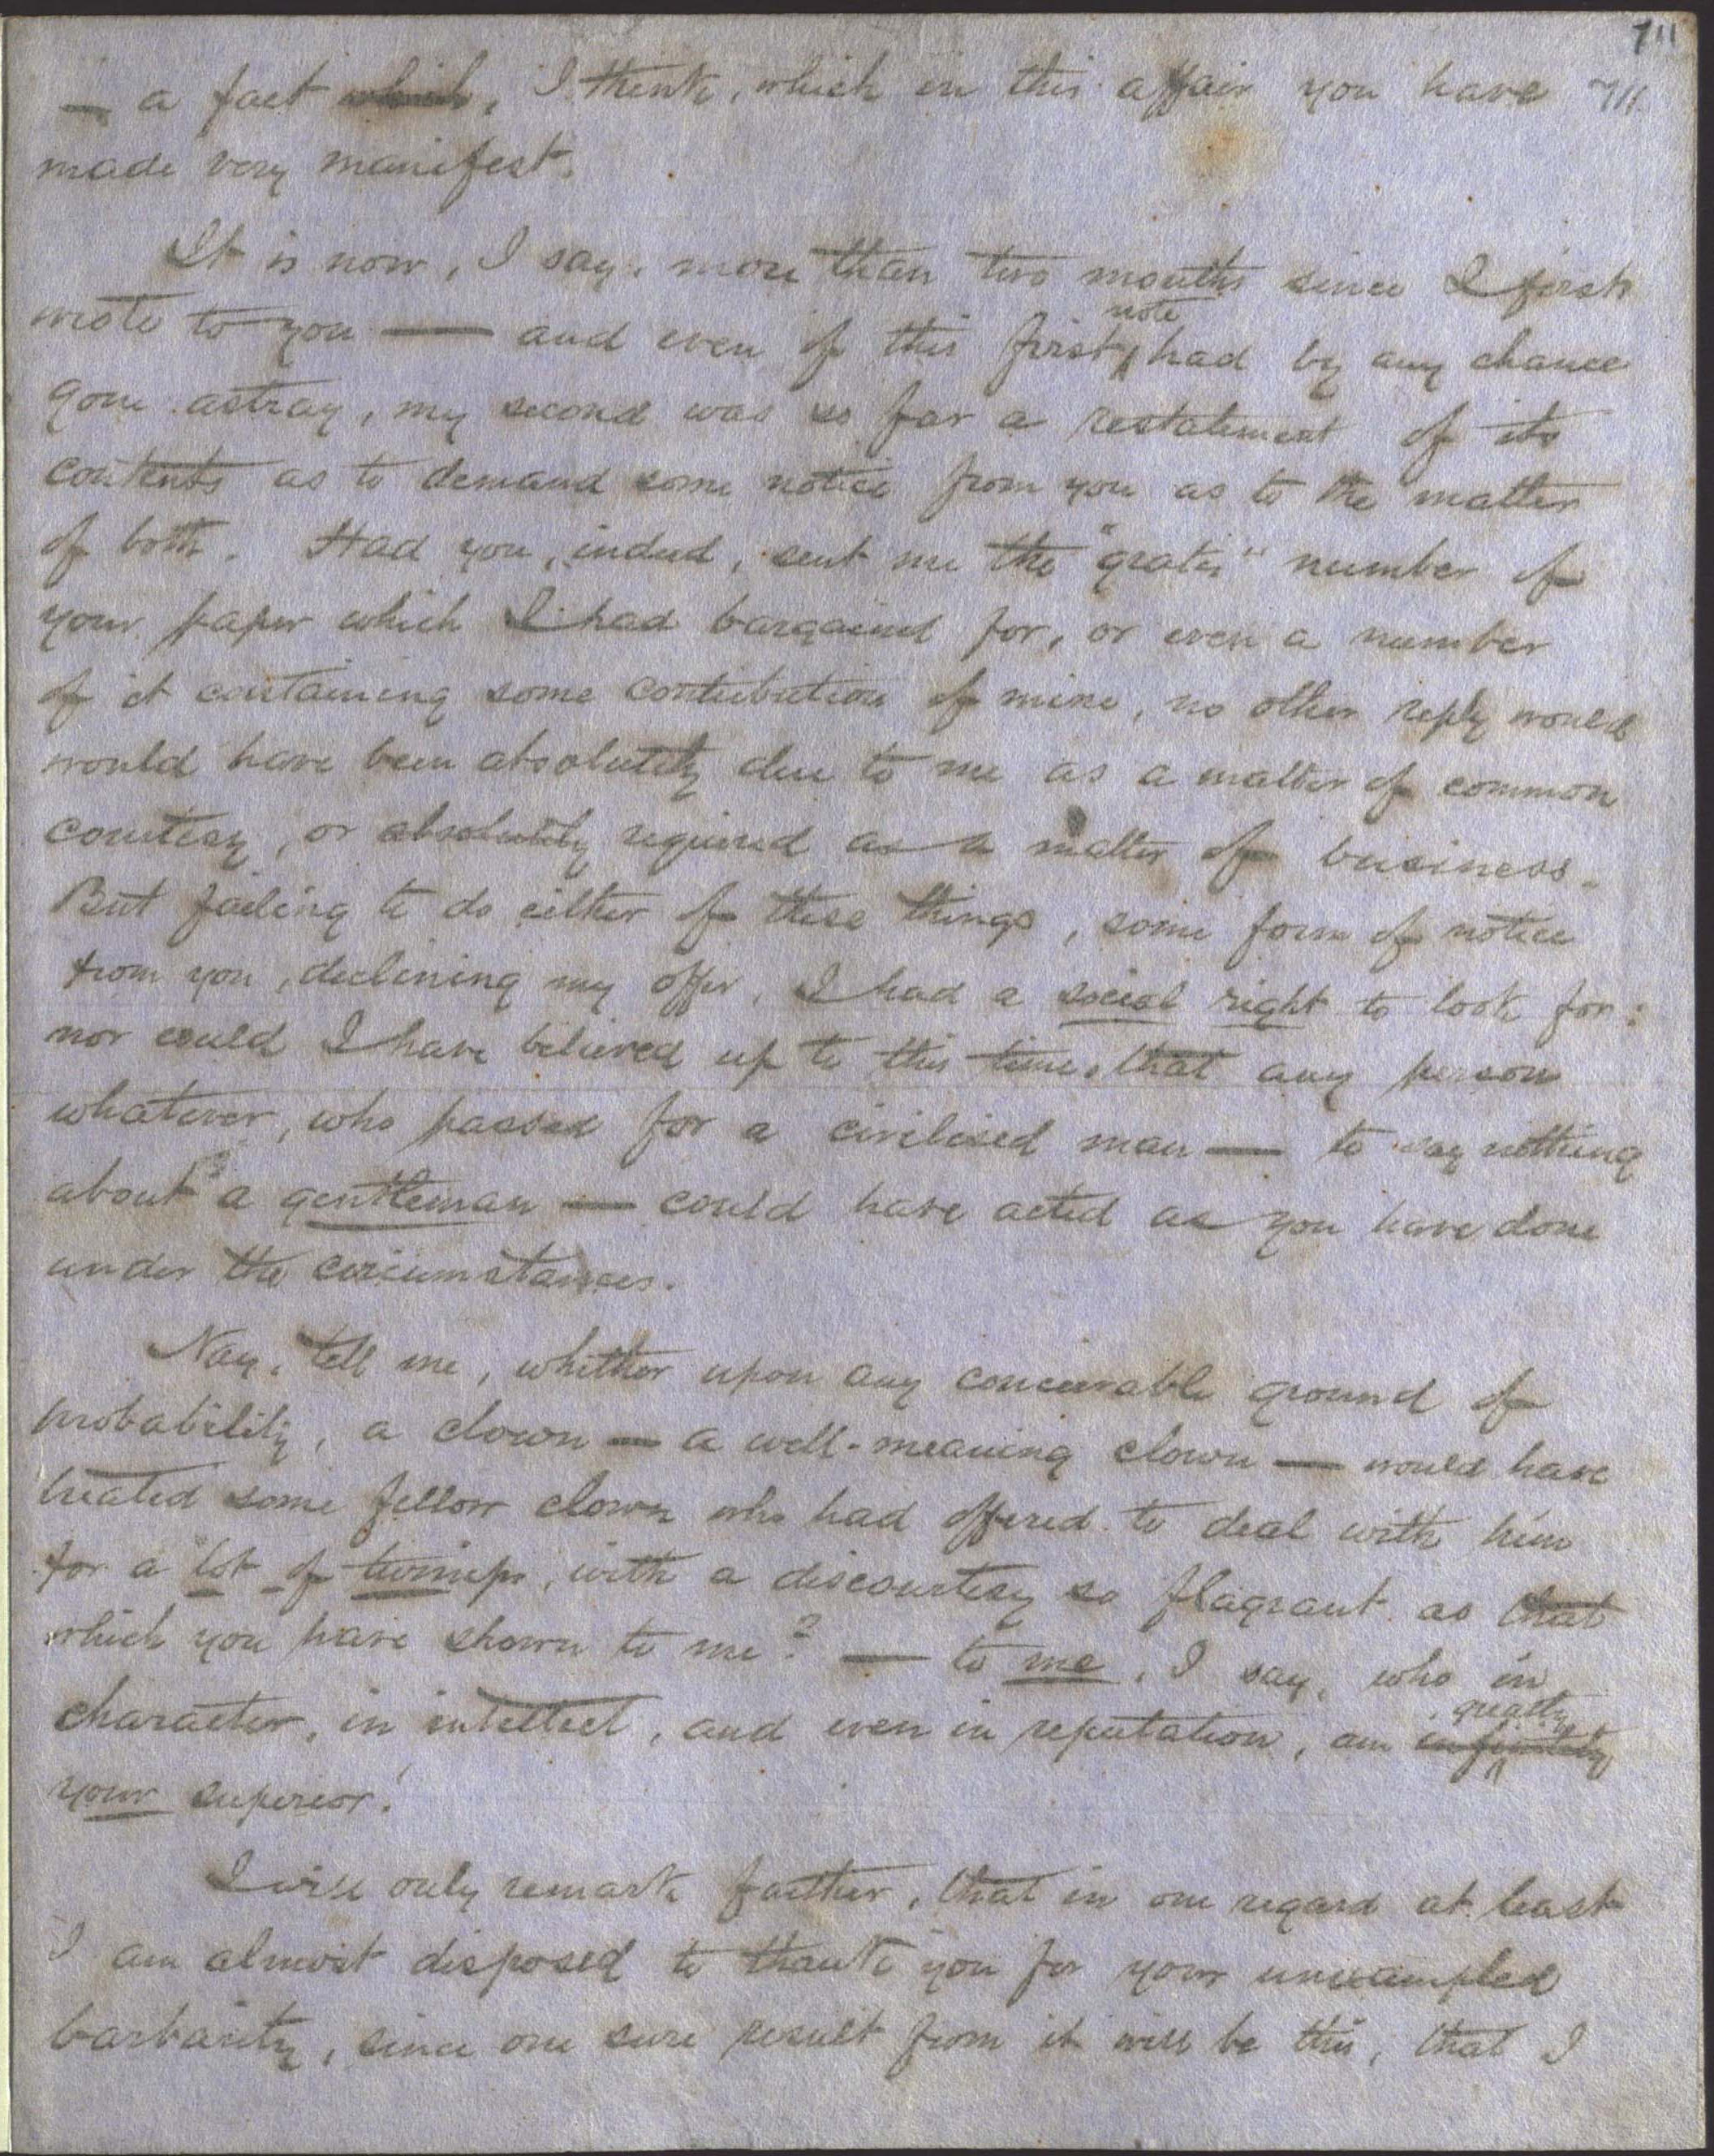 711
— a fact which, I think, which in this affair you have 711
made very manifest.
It is now, I say, more than two months since I first
note
wrote to you — and even if this first had by any chance
gone astray, my second was so far a restatement of its
contents as to demand some notice from you as to the matter
of both. Had you, indeed, sent me the "gratis" number of
your paper which I had bargained for, or even a number
of it containing some contribution of mine, no other reply would
would have been absolutely due to me as a matter of common
courtesy, or absolutely required as a matter of business.
But failing to do either of these things, some form of notice
from you, declining my offer, I had a social right to look for:
nor could I have believed up to this time, that any person
whatever, who passed for a civilised man — to say nothing
about a gentleman — could have acted as you have done
under the circumstances.
Nay, tell me, whether upon any conceivable ground of
probability, a clown — a well-meaning clown — would have
treated some fellow clown who had offered to deal with him
for a lot of turnips, with a discourtesy so flagrant as that
which you have shown to me? — to me, I say, who in
greatly
character, in intellect, and even in reputation, am infinitely
your superior!
I will only remark farther, that in one regard at least
I am almost disposed to thank you for your unexampled
barbarity, since one sure result from it will be this, that I